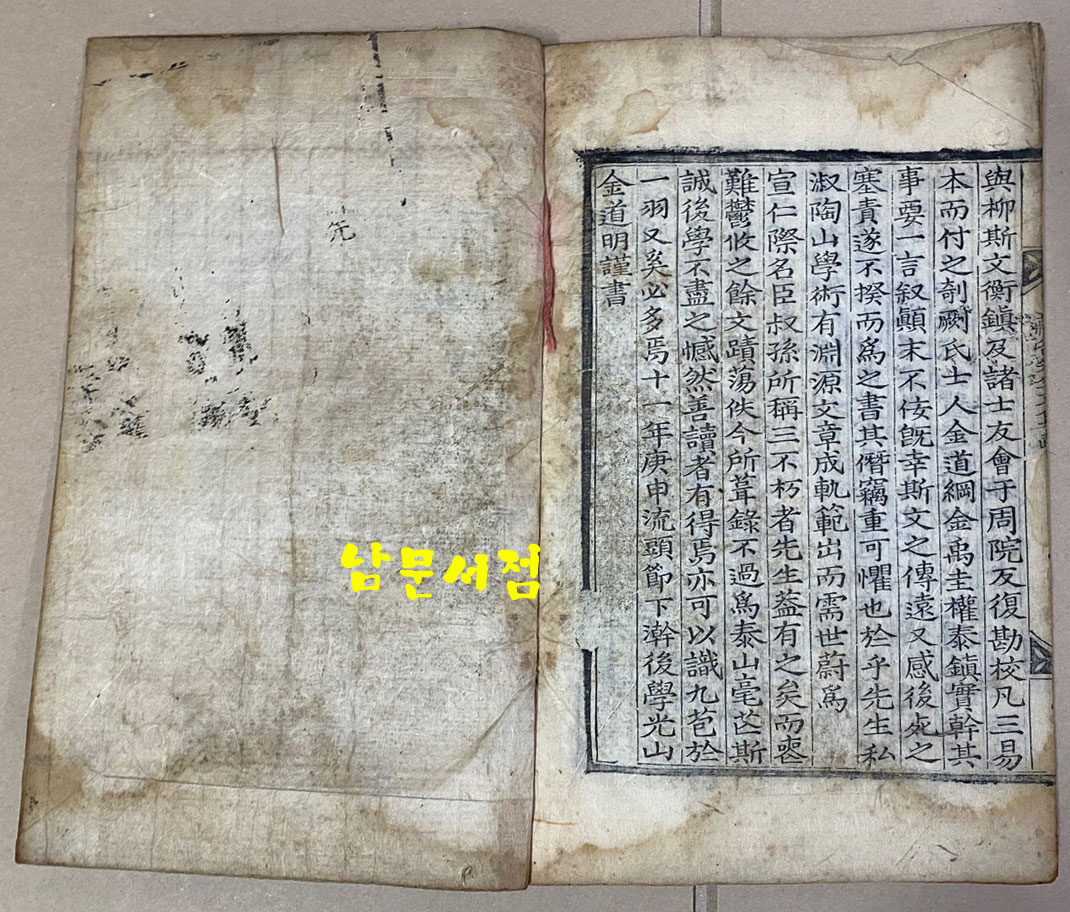 與柳斯文衡鎭及諸士友會于周院反復勘校凡三易
本而付之剞劂氏士人金道綱金禹圭權泰鎭實幹其
事要一言叙顚末不侫旣幸斯文之傳遠又感後死之
塞責遂不揆而爲之書其僭竊重可懼也於乎先生私
淑陶山學術有淵源文章成軌範出而需世蔚爲
宣仁際名臣叔孫所稱三不朽者先生蓋有之矣而喪
難鬱攸之餘文蹟蕩佚今所葺錄不過爲泰山毫芒斯
誠後學不盡之憾然善讀者有得焉亦可以識九苞於
一羽又奚必多焉十一年庚申流頭節下澣後學光山
金道明謹書
先
남문서점